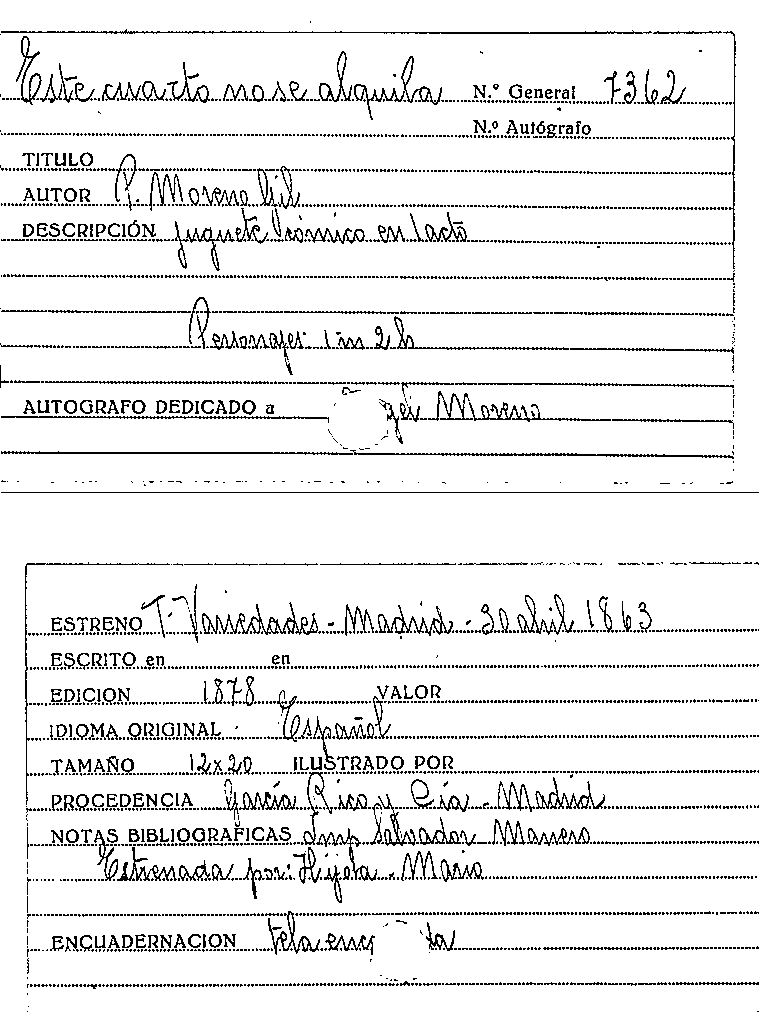 Este cuarto no se alquila N.º General 7362
N.º Autógrafo
TITULO
AUTOR P. Moreno Gil
DESCRIPCIÓN Juguete cómico en 1 acto
Personajes: 1 m 2 h
AUTOGRAFO DEDICADO a Moreno
ESTRENO T. Variedades - Madrid - 30 abril 1863
ESCRITO en en
EDICION 1878 VALOR
IDIOMA ORIGINAL Español
TAMAÑO 12x20 ILUSTRADO POR
PROCEDENCIA García Rico y Cía - Madrid
NOTAS BIBLIOGRAFICAS Imp Salvador Manero
Estrenada por: Hijosa - Mario
ENCUADERNACION tela